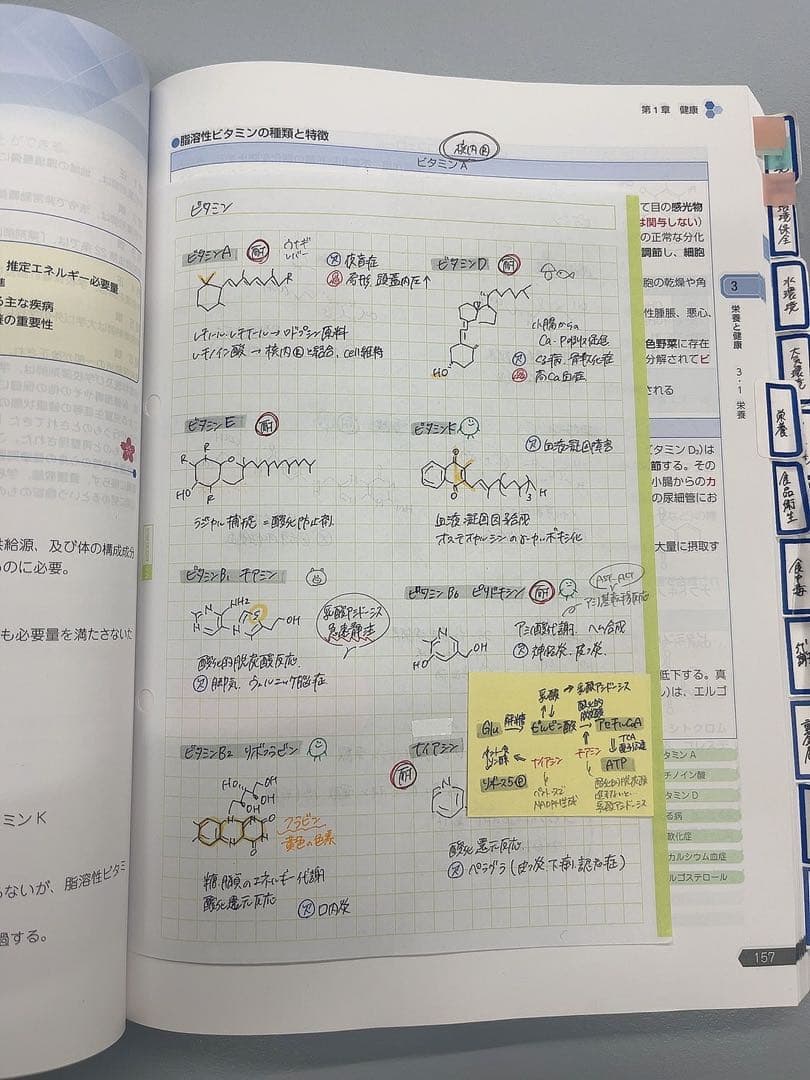 第1章 健康
●脂溶性ビタミンの種類と特徴
核内R
ビタミンA
ビタミン
ビタミンA
耐
ウナギ
レバー
欠 夜盲症
過 奇形 頭蓋内圧↑
R
レチノール・レチナール→ロドプシン原料
レチノイン酸→核内Rと結合、cell維持
ビタミンD
耐
HO
小腸からの
Ca・P吸収促進
欠 くる病、骨軟化症
過 高Ca血症
ビタミンE
耐
R
R
HO
R
ラジカル捕捉=酸化防止剤
ビタミンK
欠 血液凝固障害
O
O
3
H
血液凝固因子合成
オステオカルシンのγ-カルボキシ化
ビタミンB1 チアミン
NH2
N
N
S
OH
乳酸アシドーシス
急速静注
酸化的脱炭酸反応
欠 脚気、ウェルニッケ脳症
ビタミンB6 ピリドキシン
耐
AST、ALT
アミノ基転移反応
N
HO
OH
アミノ酸代謝、ヘム合成
欠 神経炎、皮フ炎
ビタミンB2 リボフラビン
HO
OH
OH
OH
N
N
O
NH
N
O
フラビン
黄色の色素
糖・脂質のエネルギー代謝
酸化還元反応
欠 口内炎
ナイアシン
耐
N
酸化還元反応
欠 ペラグラ(皮フ炎、下痢、認知症)
乳酸→乳酸アシドーシス
Glu 解糖 ピルビン酸→アセチルCoA
酸化的
脱炭酸
ナイアシン
チアミン
TCA
ATP
リボース5P
ペントースで
NADPH生成
酸化的脱炭酸
乳酸アシドーシス
て目の感光物
は関与しない)
の正常な分化
調節し、細胞
胞の乾燥や角
性腫脹、悪心、
色野菜に存在
分解されてビ
される
ビタミンD₂)は
節する。その
小腸からのカ
の尿細管にお
大量に摂取す
低下する。真
ル)は、エルゴ
タミンA
チノイン酸
タミンD
る病
軟化症
カルシウム血症
ルゴステロール
3
栄養と健康
3・1 栄養
157
環境保全
水環境
大気環境
栄養
食品衛生
食中毒
代謝
推定エネルギー必要量
る主な疾病
の重要性
共給源、及び体の構成成分
ものに必要。
も必要量を満たさないた
ミンK
らないが、脂溶性ビタミ
過する。